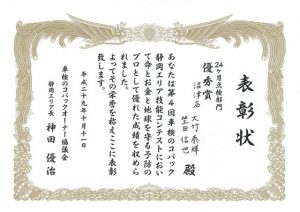 表彰状
24ヶ月点検部門
優秀賞
沼津店 大竹泰輝
信也
殿
あなたは第4回車検のコバック
静岡エリア技能コンテストにおい
て命とお金と地球を守る予防の
プロとして優れた成績を収めら
れました
よってその栄誉を称えここに表彰
致します。
平成二十九年十月十一日
車検のコバックオーナー協議会
静岡エリア長 神田 優治